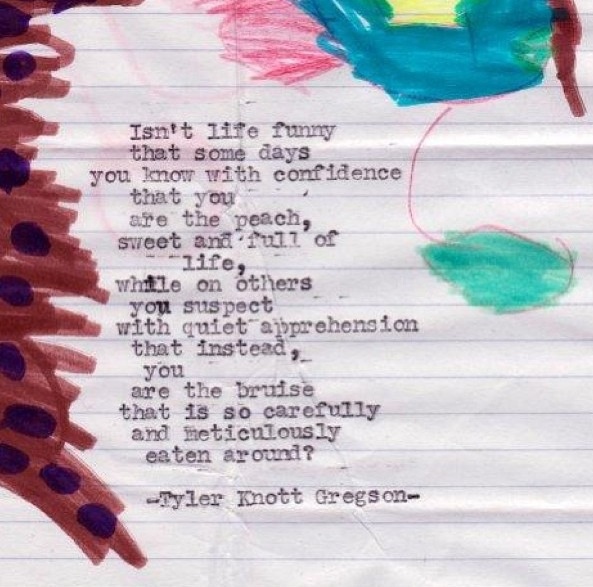 Isn't life funny
that some days
you know with confidence
that you
are the peach,
sweet and full of
life,
while on others
you suspect
with quiet apprehension
that instead,
you
are the bruise
that is so carefully
and meticulously
eaten around?
-Tyler Knott Gregson-